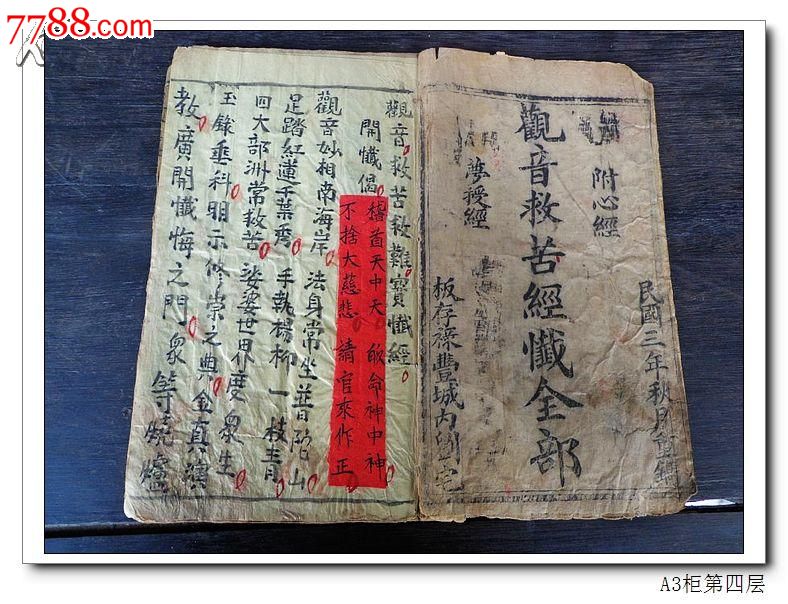 7788.com
民國三年秋月重鐫
附心經
觀音救苦經懺全部
夢授經
板存祿豐城內劉宅
觀音救苦救難寶懺經
開懺偈
稽首天中天 皈命神中神
不捨大慈悲 請官來作正
觀音妙相南海岸 法身常坐普陀山
足踏紅蓮千葉秀 手執楊柳一枝青
四大部洲常救苦 娑婆世界度衆生
玉籙垂科明示修崇之典金真演
教廣開懺悔之門衆等燒爐
A3柜第四层